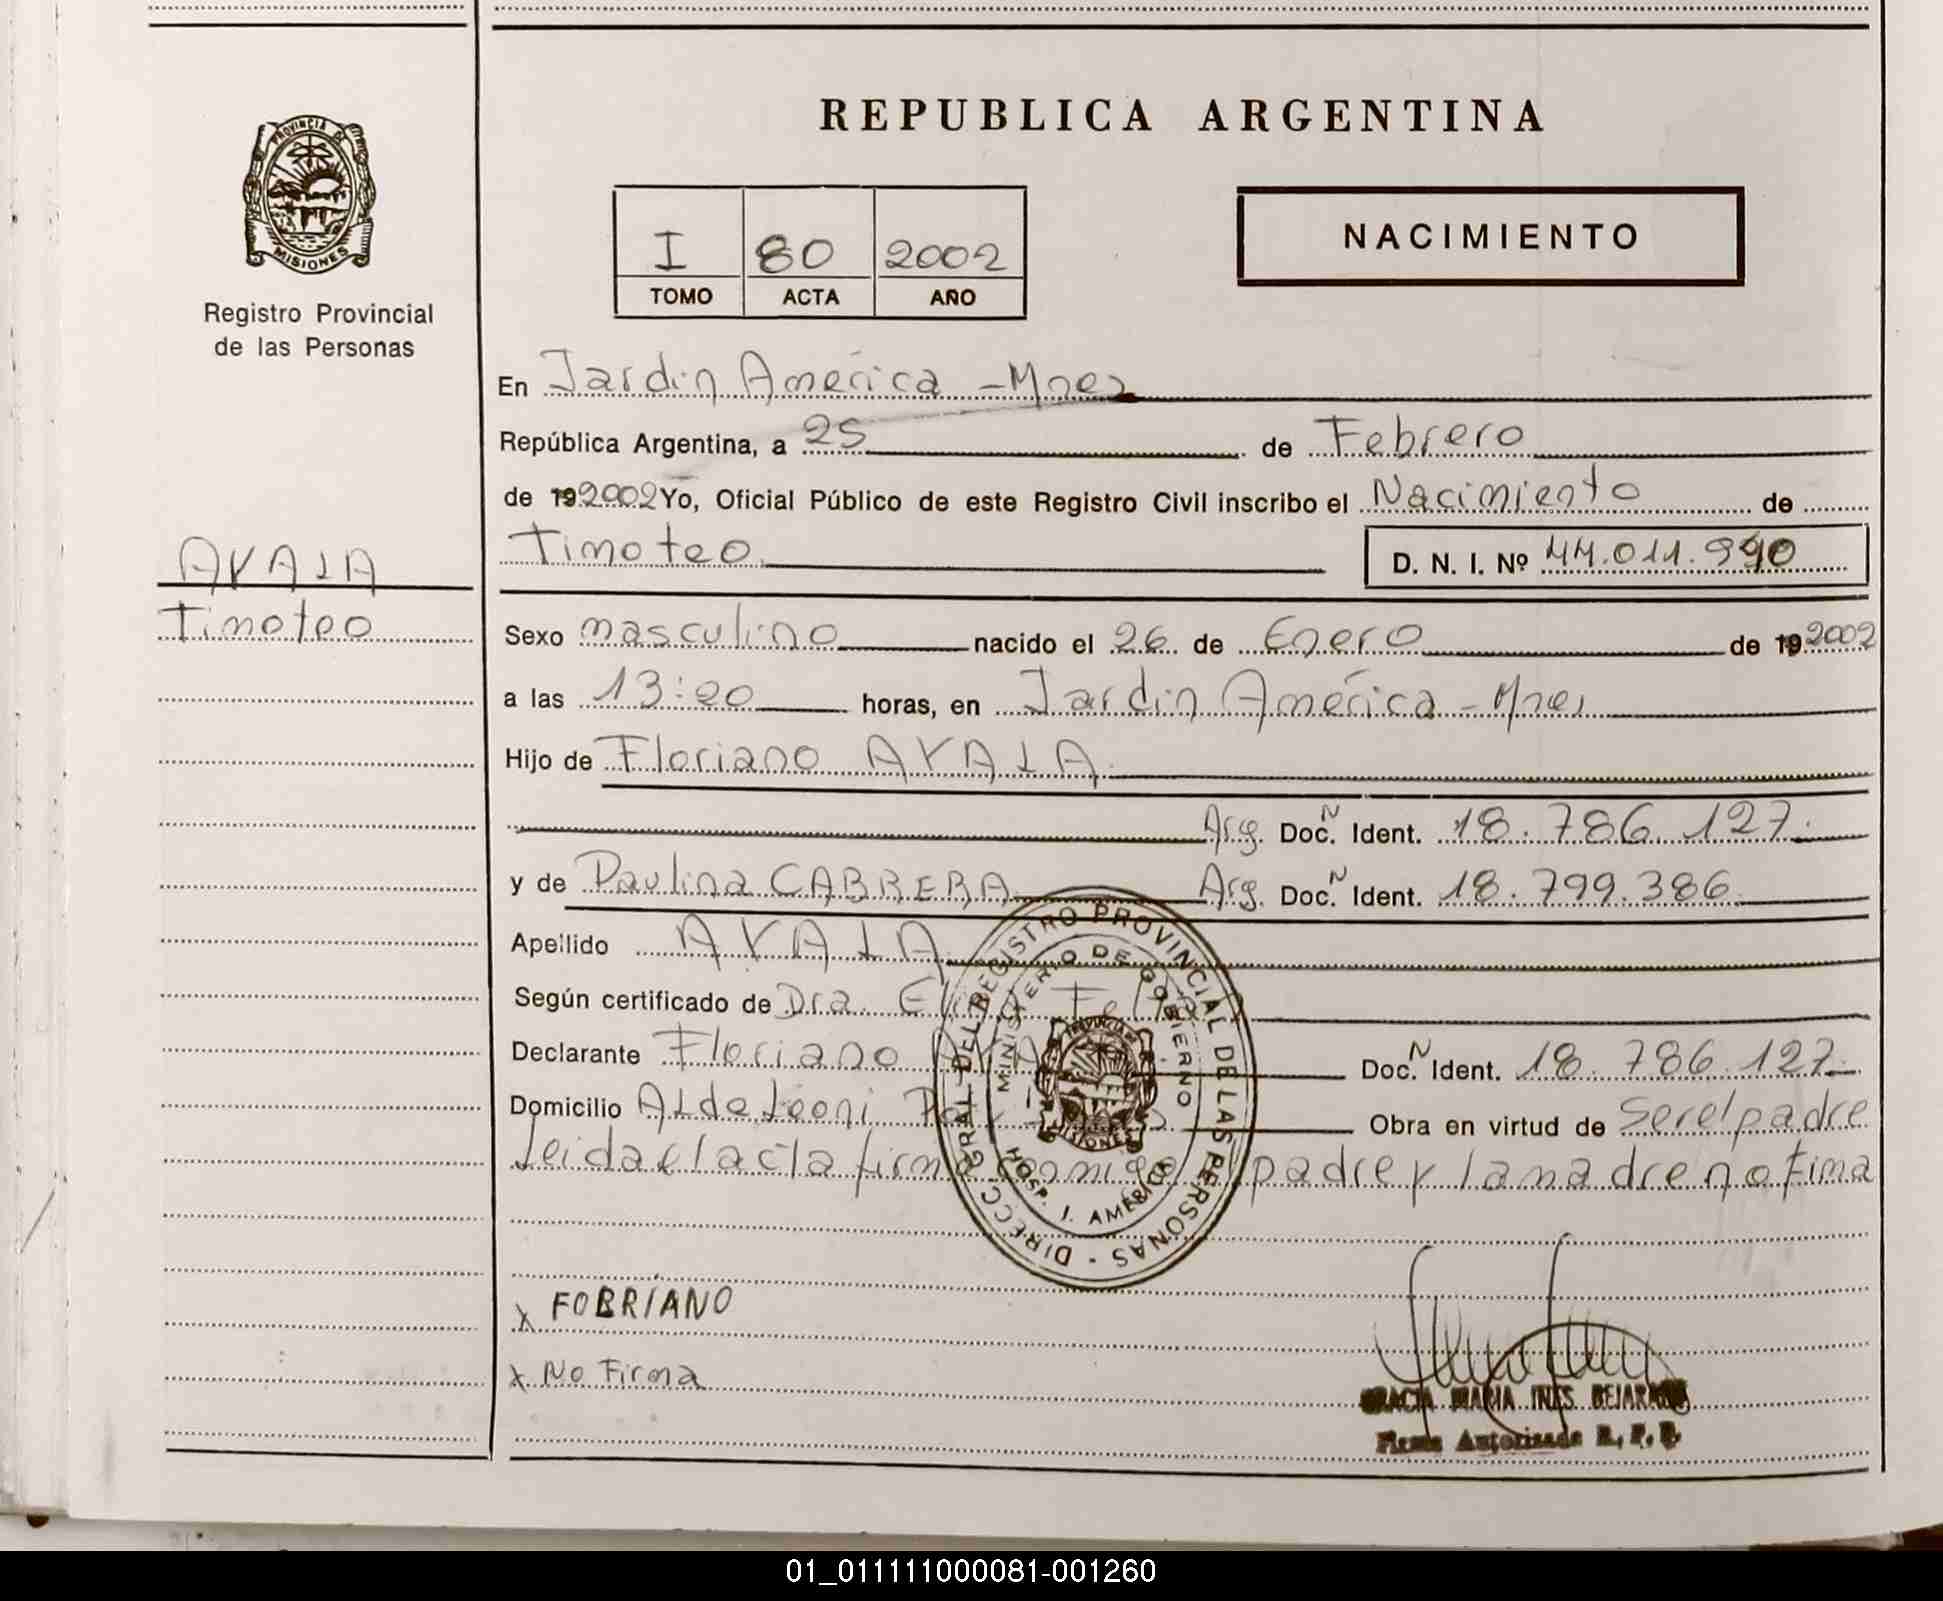 REPUBLICA ARGENTINA
PROVINCIA DE MISIONES
Registro Provincial
de las Personas
I 80 2002
TOMO ACTA AÑO
NACIMIENTO
En Jardin América - Mnes
República Argentina, a 25 de Febrero
de 192002 Yo, Oficial Público de este Registro Civil inscribo el Nacimiento de
Timoteo D. N. I. Nº 44.011.990
AYALA
Timoteo
Sexo masculino nacido el 26 de Enero de 192002
a las 13:20 horas, en Jardin América - Mnes
Hijo de Floriano AYALA
Arg. Doc. N Ident. 18.786.127.
y de Paulina CABRERA Arg. Doc. N Ident. 18.799.386.
Apellido AYALA
Según certificado de Dra.
Declarante Floriano Doc. N Ident. 18.786.127.
Domicilio Aldea Leoni Obra en virtud de ser el padre
Leida el acta firma conmigo padre y la madre no fima
DIRECC. GRAL. DEL REGISTRO PROVINCIAL DE LAS PERSONAS -
MINISTERIO DE GOBIERNO
HOSP. J. AMERICA
x FOBRIANO
x No Firma
GRACIA MARIA INES BEJARANO
Firma Autorizada R. P. P.
01_011111000081-001260